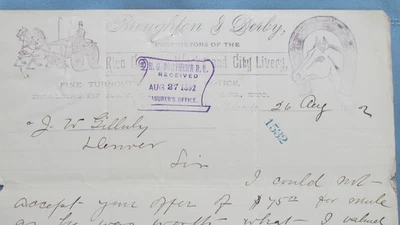 Broughton & Derby,
PROPRIETORS OF THE
Rico City Livery,
FINE TURNOUTS
R. G. SOUTHERN R. R.
RECEIVED
AUG 27 1892
OFFICE.
26 Aug 2
1532
J. W. Gilluly
Denver
Sir
I could not
accept your offer of $75.00 for mule
as he was worth what I valued